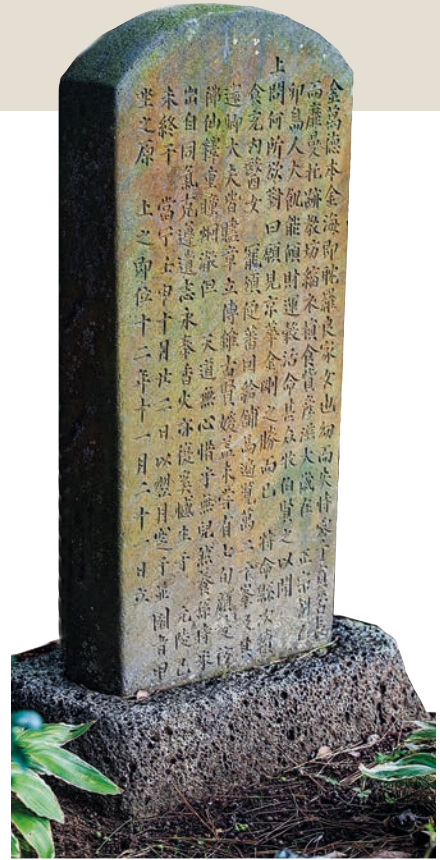 金萬德本金海即耽羅良家女也幼而失恃零丁貧苦長
而靡曼托跡敎坊縮衣損食貲產滋大歲在 正宗朝乙
卯島人大飢能傾財運穀活命甚衆牧伯賢之以聞
上問何所欲對曰願見京華金剛之勝而已 特命縣次續
食充內醫女 寵頒隆蕃因輪舖馬遊覽萬二千峯及其
還卿大夫皆贐章立傳雖古賢媛蓋未嘗有七旬顔髮彷
彿仙釋重瞳炯澈但 天道無心惜乎無兒然養孫時采
出自同氣克遵遺志永奉香火亦復奚憾生于 元陵己
未終于 當宁壬申十月廿二日以翌月窆于並園旨甲
坐之原 上之即位十二年十一月二十一日立